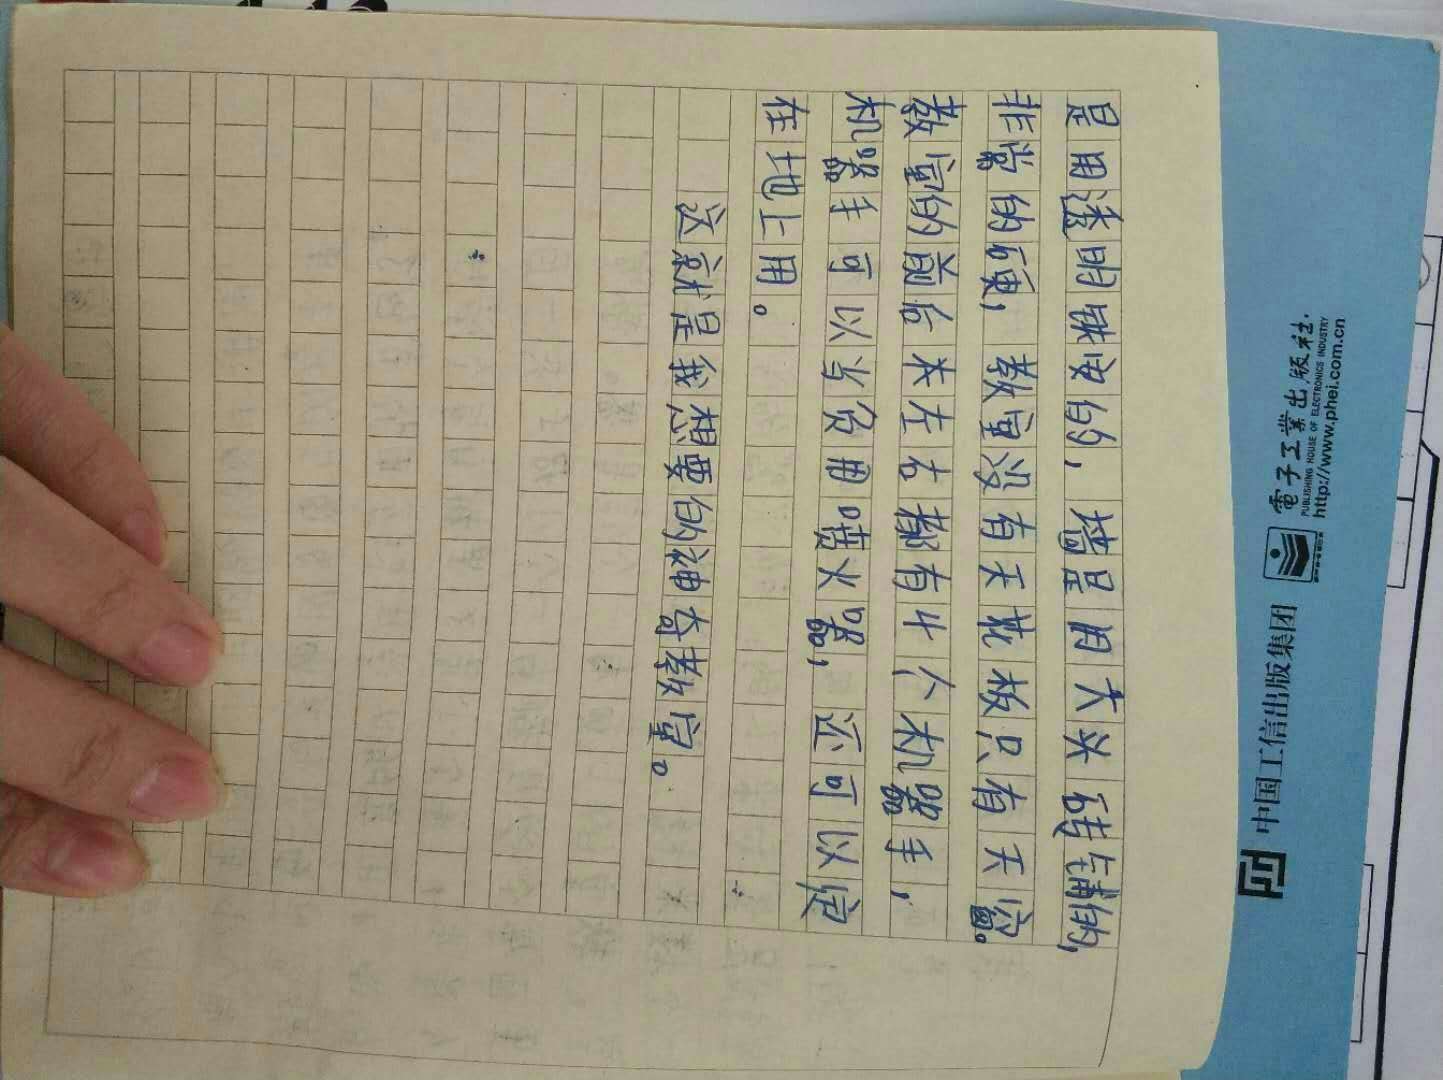 是用透明钢做的，墙是用大头砖铺的，
非常的硬，教室没有天花板只有天窗。
教室的前后本左右都有4个机器手，
机器手可以当负用喷火器，还可以定
在地上用。
这就是我想要的神奇教室。
電子工業出版社.
PUBLISHING HOUSE OF ELECTRONICS INDUSTRY
http://www.phei.com.cn
中国工信出版集团